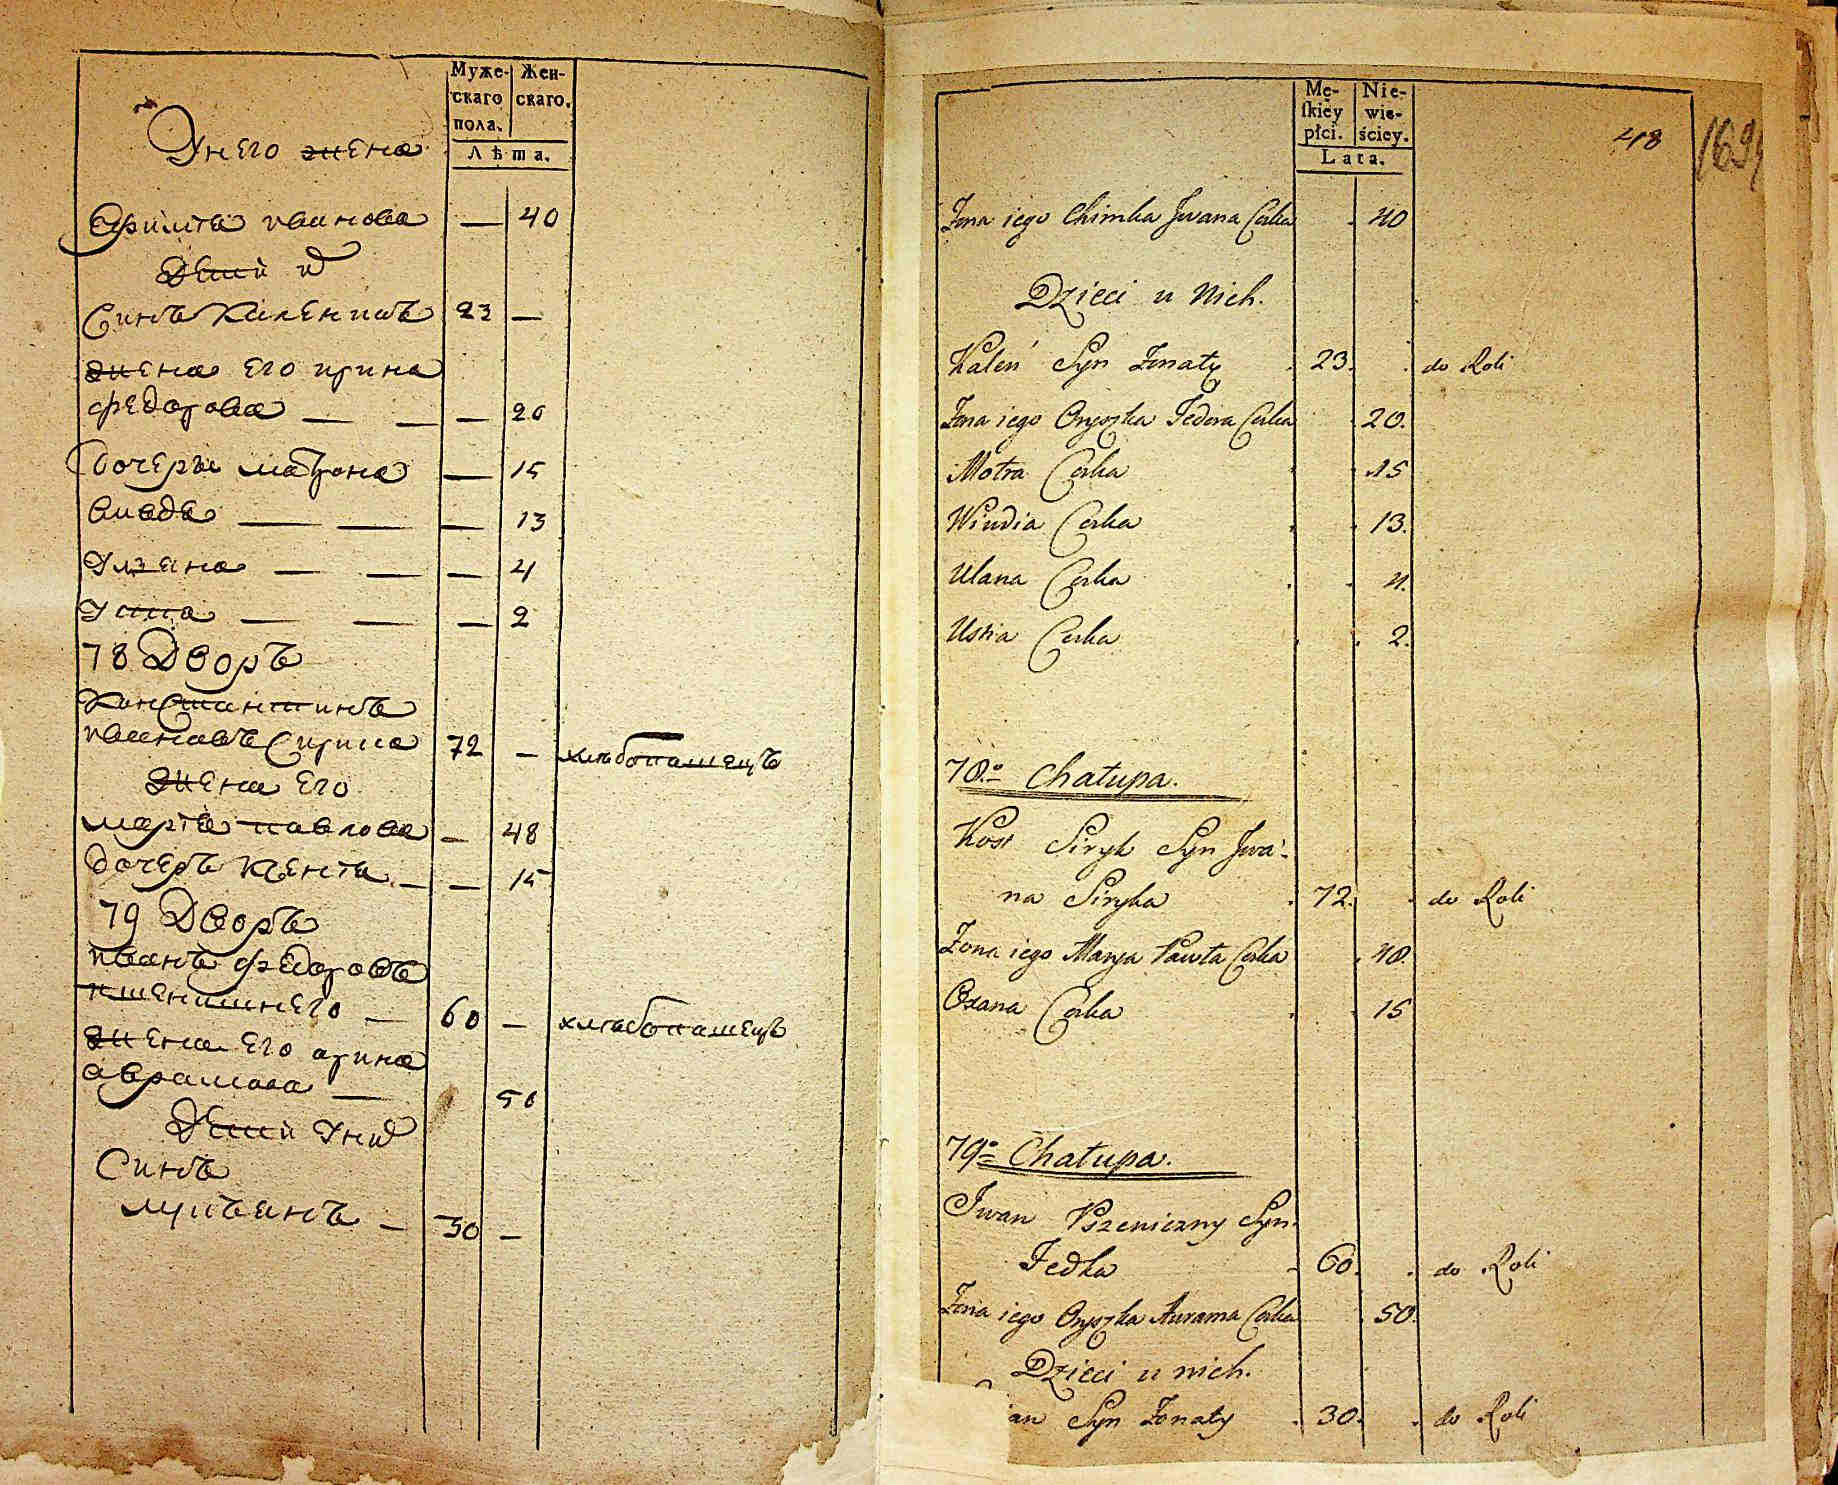 Муже-
скаго
пола.
Жен-
скаго.
Лѣта.
Унего жена
Ефимїя иванова — 40
Дети их
Синъ Каленикъ 23 —
жена его ирина
федорова — — — 20
дочери матрона — 15
— — — 13
Уляна — — — 4
— — — 2
78 Дворъ
Константинъ
ивановъ Сирика 72 — хлѣбопашецъ
жена его
марїя павлова — 48
дочеръ — — 15
79 Дворъ
иванъ федоровъ
пшеничнего — 60 — хлѣбопашецъ
жена его ирина
аврамова — 50
Дети уних
Синъ
— 30 —
Mę-
skiey
płci.
Nie-
wie-
ściey.
Lata.
48
169
Żona iego Chimka Jwana Corka 40
Dzieci u Nich.
Kaleń Syn Żonaty 23. do Roli
Żona iego Oryszka Fedora Corka 20.
Motra Corka 15
Wiudia Corka 13.
Ulana Corka 4.
Ustia Corka 2.
78.o Chałupa.
Kost Siryk Syn Jwa-
na Siryka 72. do Roli
Żona iego Marya Pawła Corka 48.
Oxana Corka 15
79.o Chałupa.
Jwan Pszeniczny Syn
Fedka 60. do Roli
Żona iego Oryszka Aurama Corka 50.
Dzieci u nich.
ian Syn Żonaty 30. do Roli